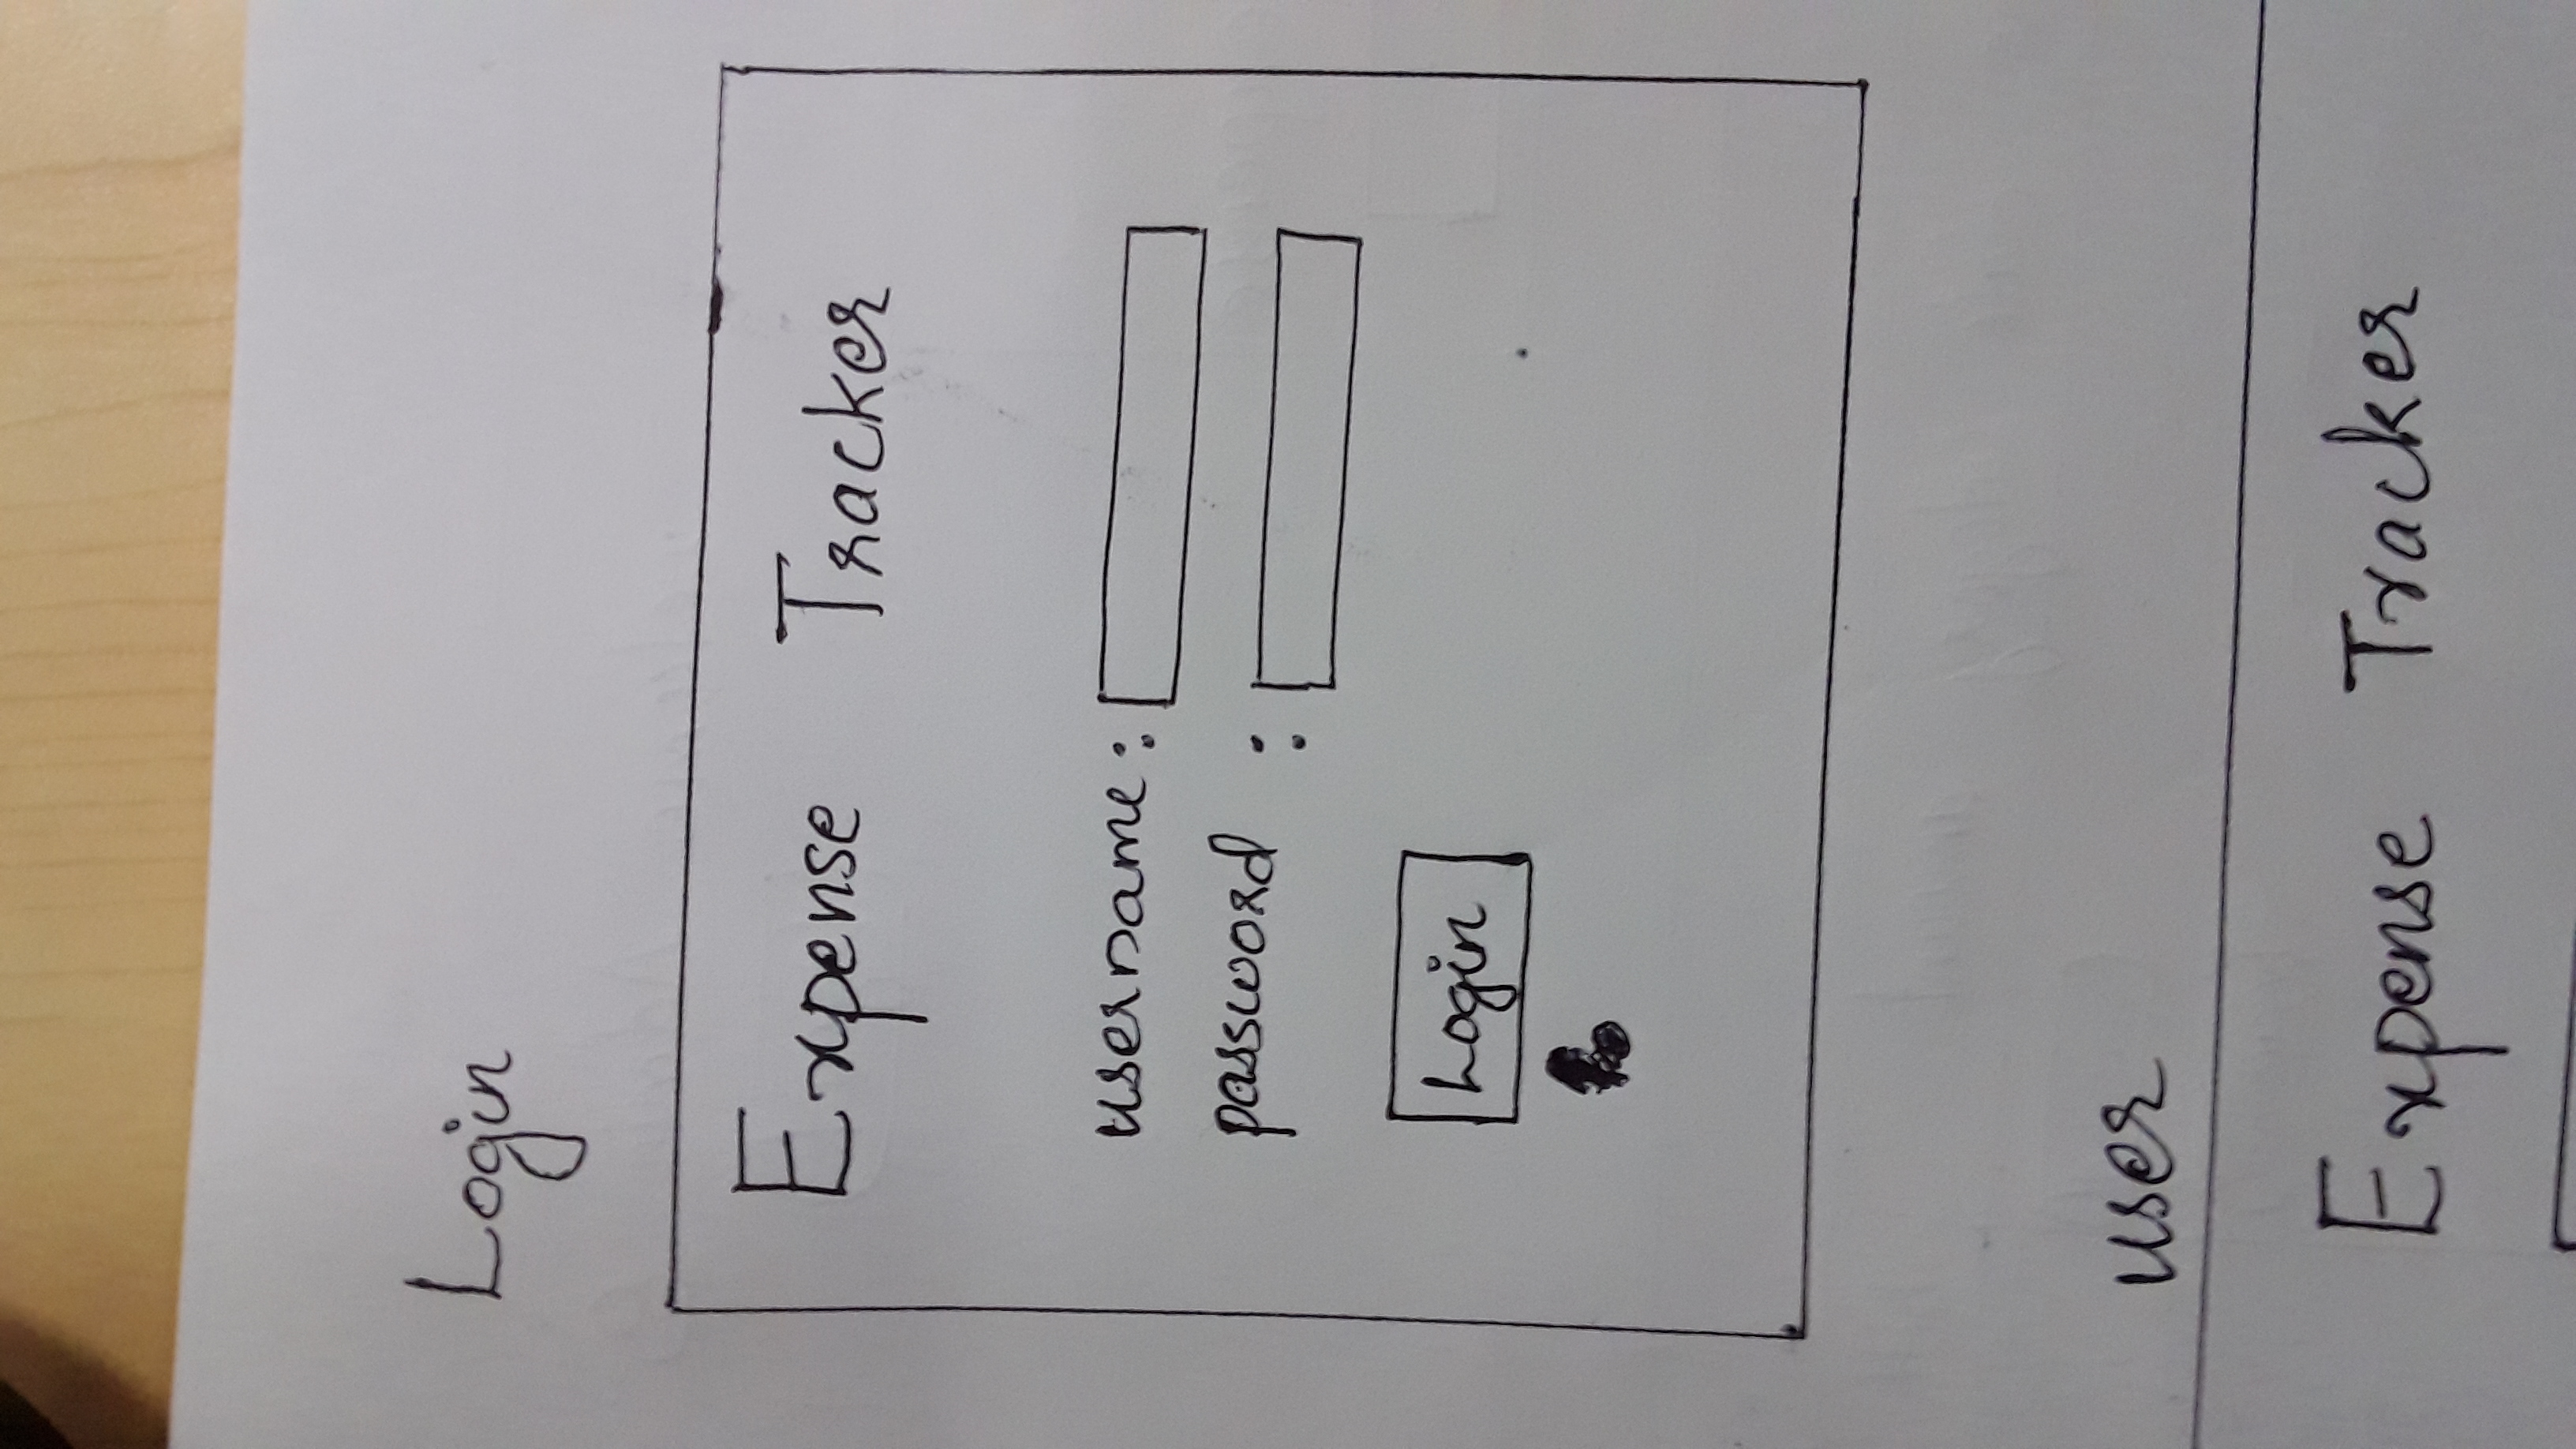 Login
Expense Tracker
username :
password :
Login
user
Expense Tracker